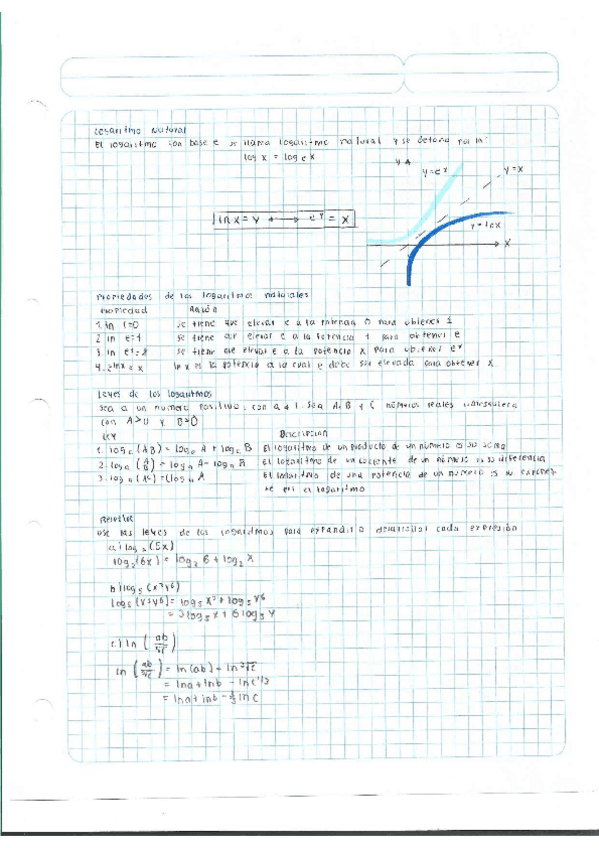 Logaritmo Natural
El logaritmo con base e se llama logaritmo natural y se denota por ln:
log x = log e x
y
y=e^x
y=x
ln x = y ⟷ e^y = x
y=lnx
x
Propiedades de los logaritmos naturales
Propiedad Razón
1. ln 1=0 se tiene que elevar e a la potencia 0 para obtener 1
2 ln e=1 se tiene que elevar e a la potencia 1 para obtener e
3. ln e^x=x se tiene que elevar e a la potencia x para obtener e^x
4. e^lnx = x ln x es la potencia a la cual e debe ser elevada para obtener x
Leyes de los logaritmos
Sea a un numero positivo, con a ≠ 1. Sea A, B y C números reales cualesquiera
con A>0 y B>0
Ley Descripción
1. log a (AB) = log a A + log a B El logaritmo de un producto de un número es su suma
2. log a (A/B) = log a A - log a B El logaritmo de un cociente de un número es su diferencia
3. log a (A^c) = c log a A El logaritmo de una potencia de un numero es su exponen-
te en el logaritmo
Use las leyes de los logaritmos para expandir o desarrollar cada expresión
a) log 2 (6x)
log 2 (6x) = log 2 6 + log 2 x
b) log 5 (x^3 y^6)
log 5 (x^3 y^6) = log 5 x^3 + log 5 y^6
= 3 log 5 x + 6 log 5 y
c) ln (ab/∛c)
ln (ab/∛c) = ln (ab) - ln ∛c
= lna + lnb - ln c^1/3
= lna + lnb - 1/3 ln c